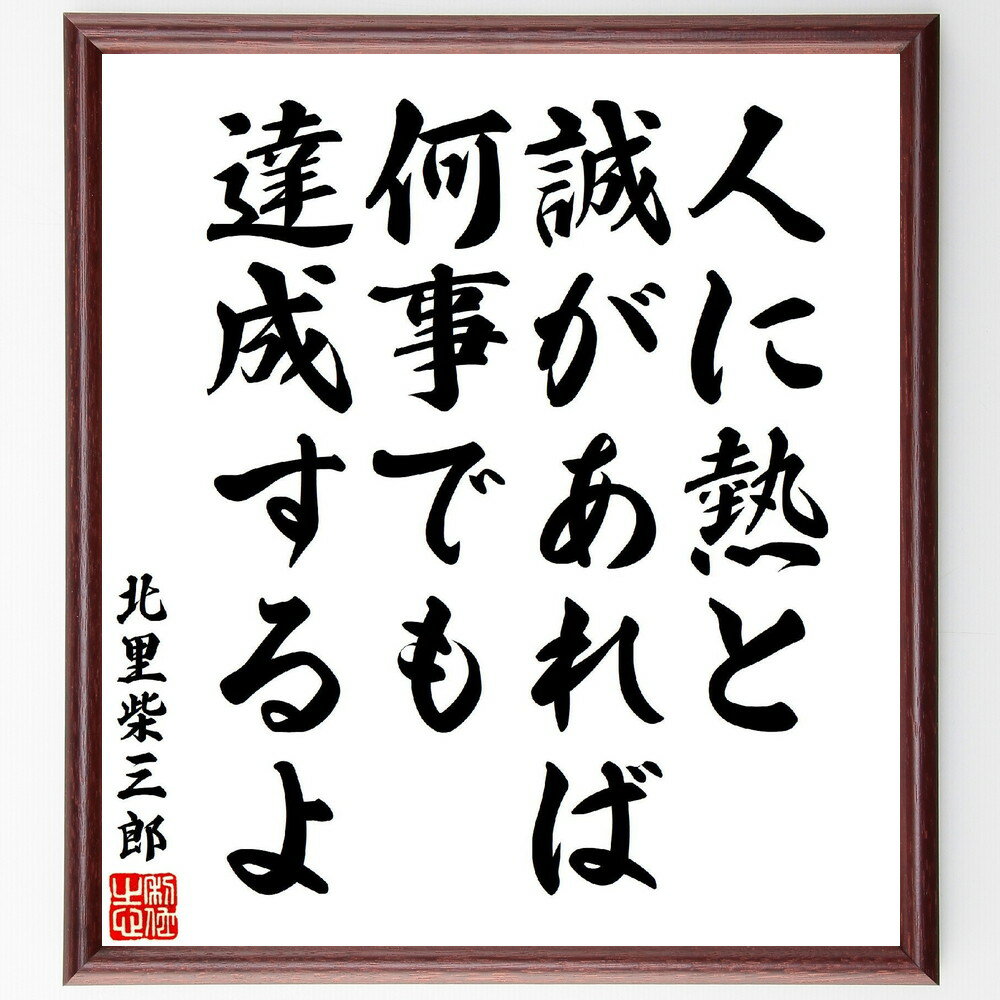 人に熱と
誠があれば
何事でも
達成するよ
北里柴三郎